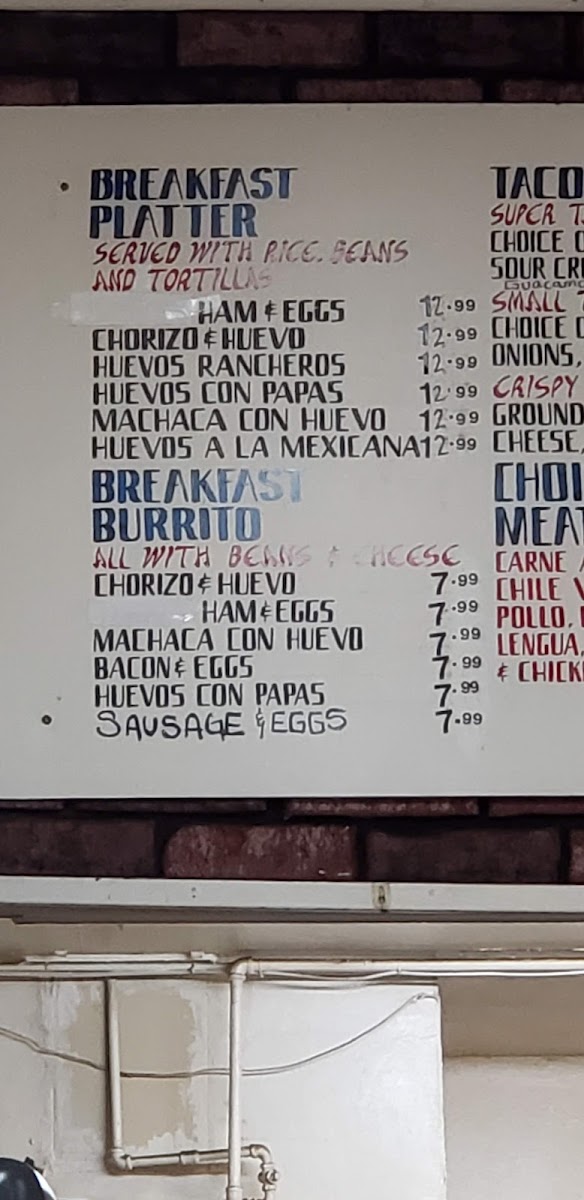 BREAKFAST
PLATTER
SERVED WITH RICE, BEANS
AND TORTILLAS
HAM & EGGS 12.99
CHORIZO & HUEVO 12.99
HUEVOS RANCHEROS 12.99
HUEVOS CON PAPAS 12.99
MACHACA CON HUEVO 12.99
HUEVOS A LA MEXICANA 12.99
BREAKFAST
BURRITO
ALL WITH BEANS & CHEESE
CHORIZO & HUEVO 7.99
HAM & EGGS 7.99
MACHACA CON HUEVO 7.99
BACON & EGGS 7.99
HUEVOS CON PAPAS 7.99
SAUSAGE & EGGS 7.99
TACO
SUPER T
CHOICE O
SOUR CRE
Guacamo
SMALL
CHOICE O
ONIONS,
CRISPY
GROUND
CHEESE,
CHOI
MEAT
CARNE A
CHILE V
POLLO,
LENGUA,
& CHICK